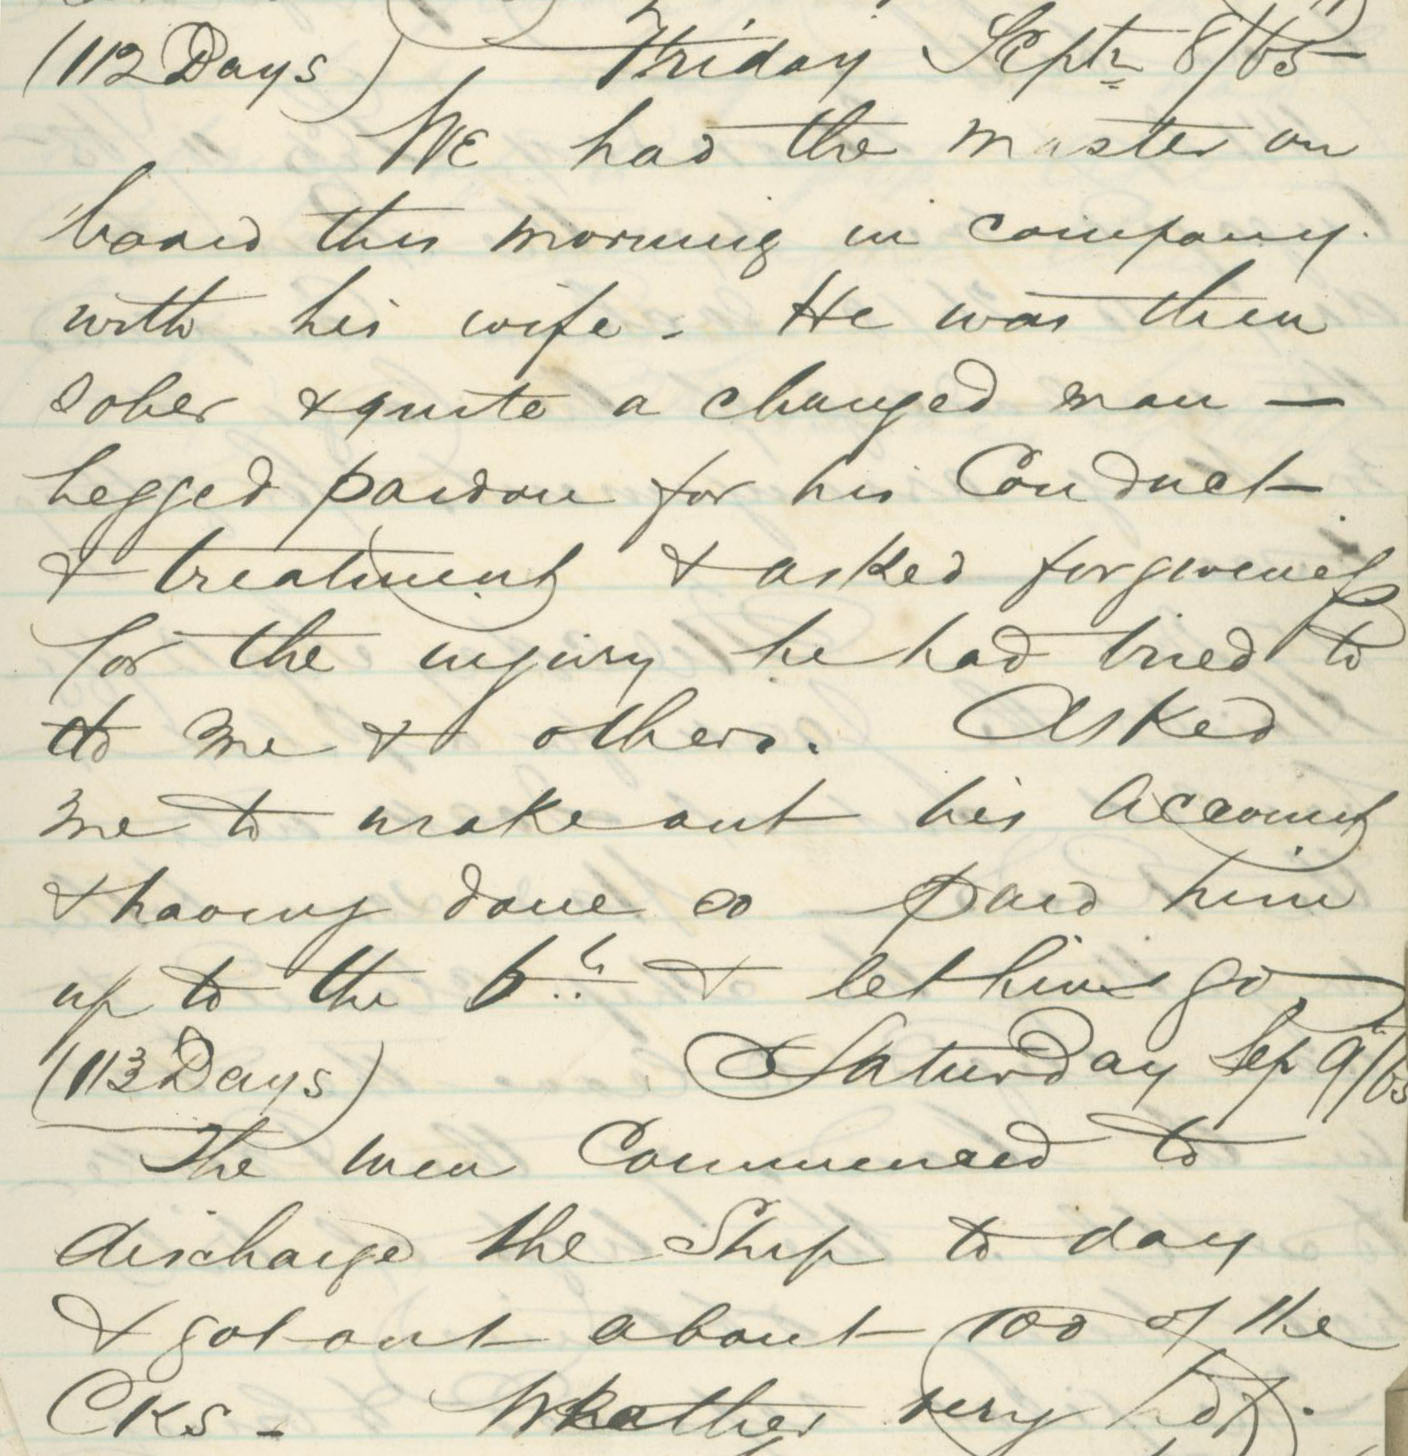 (112 Days) Friday Septr 8/65
We had the master on
board this morning in company
with his wife. He was then
sober & quite a changed man —
begged pardon for his Conduct
& treatment & asked forgiveness
for the injury he had tried to
to me & others. Asked
me to make out his Account
& having done so paid him
up to the 6th & let him go
(113 Days) Saturday Sep 9/65
The men Commenced to
discharge the Ship to day
& got out about 100 of the
CKs - Weather very hot.